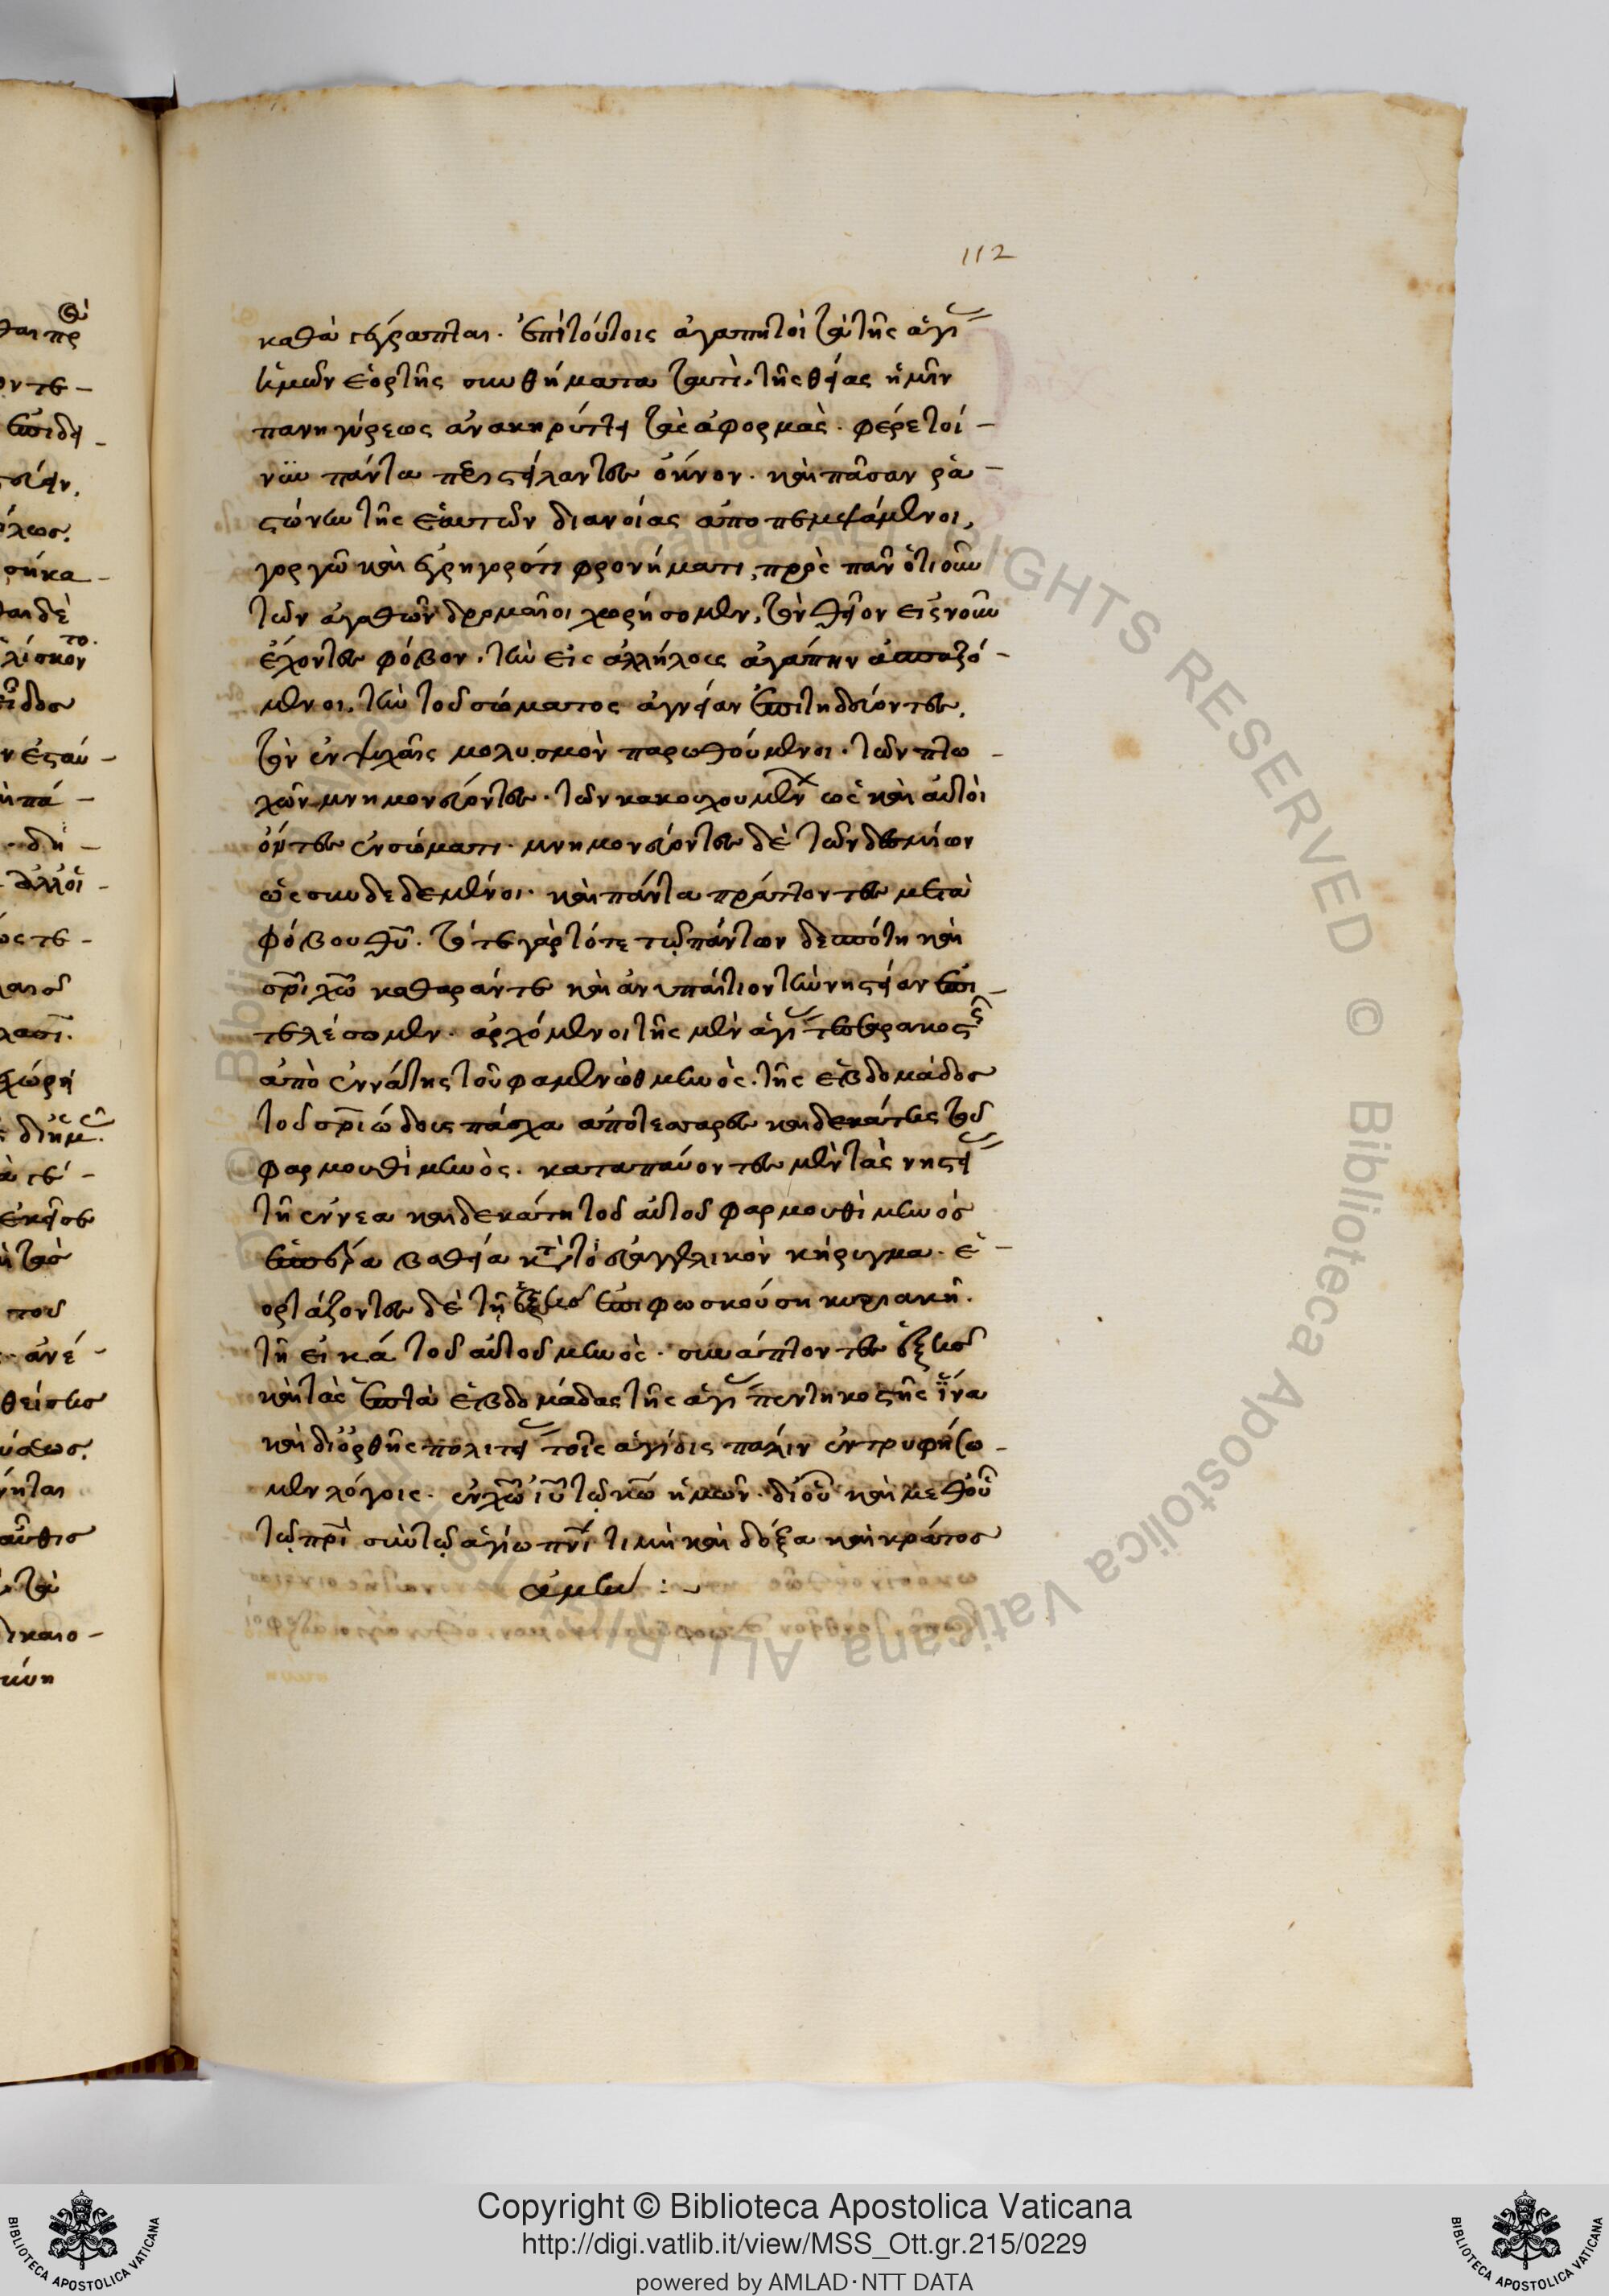 112
καθὰ γέγραπται. ἐπὶ τούτοις ἀγαπητοὶ τὰ τῆς ἁγί
ἡμῶν ἑορτῆς συνθήματα ταυτὶ. τῆς θείας ἡμῖν
πανηγύρεως ἀνακηρύττει τὰς ἀφορμὰς. φέρε τοί -
νῦν πάντα περιστείλαντες ὄκνον. καὶ πᾶσαν ρα -
στώνην τῆς ἑαυτῶν διανοίας ἀποπεμψάμενοι,
γοργῶ καὶ ἐγρηγορότι φρονήματι, πρὸς πᾶν ὁτιοῦν
τῶν ἀγαθῶν δρομαῖοι χωρήσομεν, τὸν θεῖον εἰς νοῦν
ἔχοντες φόβον. τὴν εἰς ἀλλήλους ἀγάπην ἀσπαζό -
μενοι. τὴν τοῦ σώματος ἁγνείαν ἐπιτηδεύοντες.
τὸν ἐν ψυχαῖς μολυσμὸν παρωθούμενοι. τῶν πτω -
χῶν μνημονεύοντες. τῶν κακουχουμέν ὡς καὶ αὐτοὶ
ὄντες ἐν σώματι. μνημονεύοντες δὲ τῶν δεσμίων
ὡς συνδεδεμένοι. καὶ πάντα πράττοντες μετὰ
φόβου θυ. τότε γὰρ τότε τῷ πάντων δεσπότη καὶ
σρι χω καθαράν τε καὶ ἀνυπαίτιον τὴν νηστείαν ἐπι -
τελέσωμεν. ἀρχόμενοι τῆς μὲν ἁγί τεσσαρακοστῆς
ἀπὸ ἐννάτης τοῦ φαμενὼθ μηνὸς. τῆς ἑβδομάδος
τοῦ σριώδους πάσχα ἀπὸ τεσσαρες καὶ δεκάτης τοῦ
φαρμουθὶ μηνὸς. καταπαύοντες μὲν τὰς νηστεί
τῆ ἐννέα καὶ δεκάτη τοῦ αὐτοῦ φαρμουθὶ μηνὸς
ἑσπέρα βαθεία κτ τὸ εὐαγγελικὸν κήρυγμα. ἑ -
ορτάζοντες δὲ τῇ ἑξῆς ἐπιφωσκούση κυριακῆ.
τῆ εἰκά τοῦ αὐτοῦ μηνὸς. συνάπτοντες ἑξῆς
καὶ τὰς ἑπτὰ ἑβδομάδας τῆς ἁγί πεντηκοστῆς ἵνα
καὶ δι' ὀρθῆς πολιτεί τοῖς ἁγίοις πάλιν ἐντρυφήσω -
μεν λόγοις. ἐν χω ιυ τῷ κω ἡμῶν. δι' οὗ καὶ μεθ' οὗ
τῷ πρι σὺν τῷ ἁγίω πνι τιμὴ καὶ δόξα καὶ κράτος
ἀμήν : ~
Copyright © Biblioteca Apostolica Vaticana
http://digi.vatlib.it/view/MSS_Ott.gr.215/0229
powered by AMLAD·NTT DATA
BIBLIOTECA APOSTOLICA VATICANA
BIBLIOTECA APOSTOLICA VATICANA
© Biblioteca Apostolica Vaticana ALL RIGHTS RESERVED
© Biblioteca Apostolica Vaticana ALL RIGHTS RESERVED